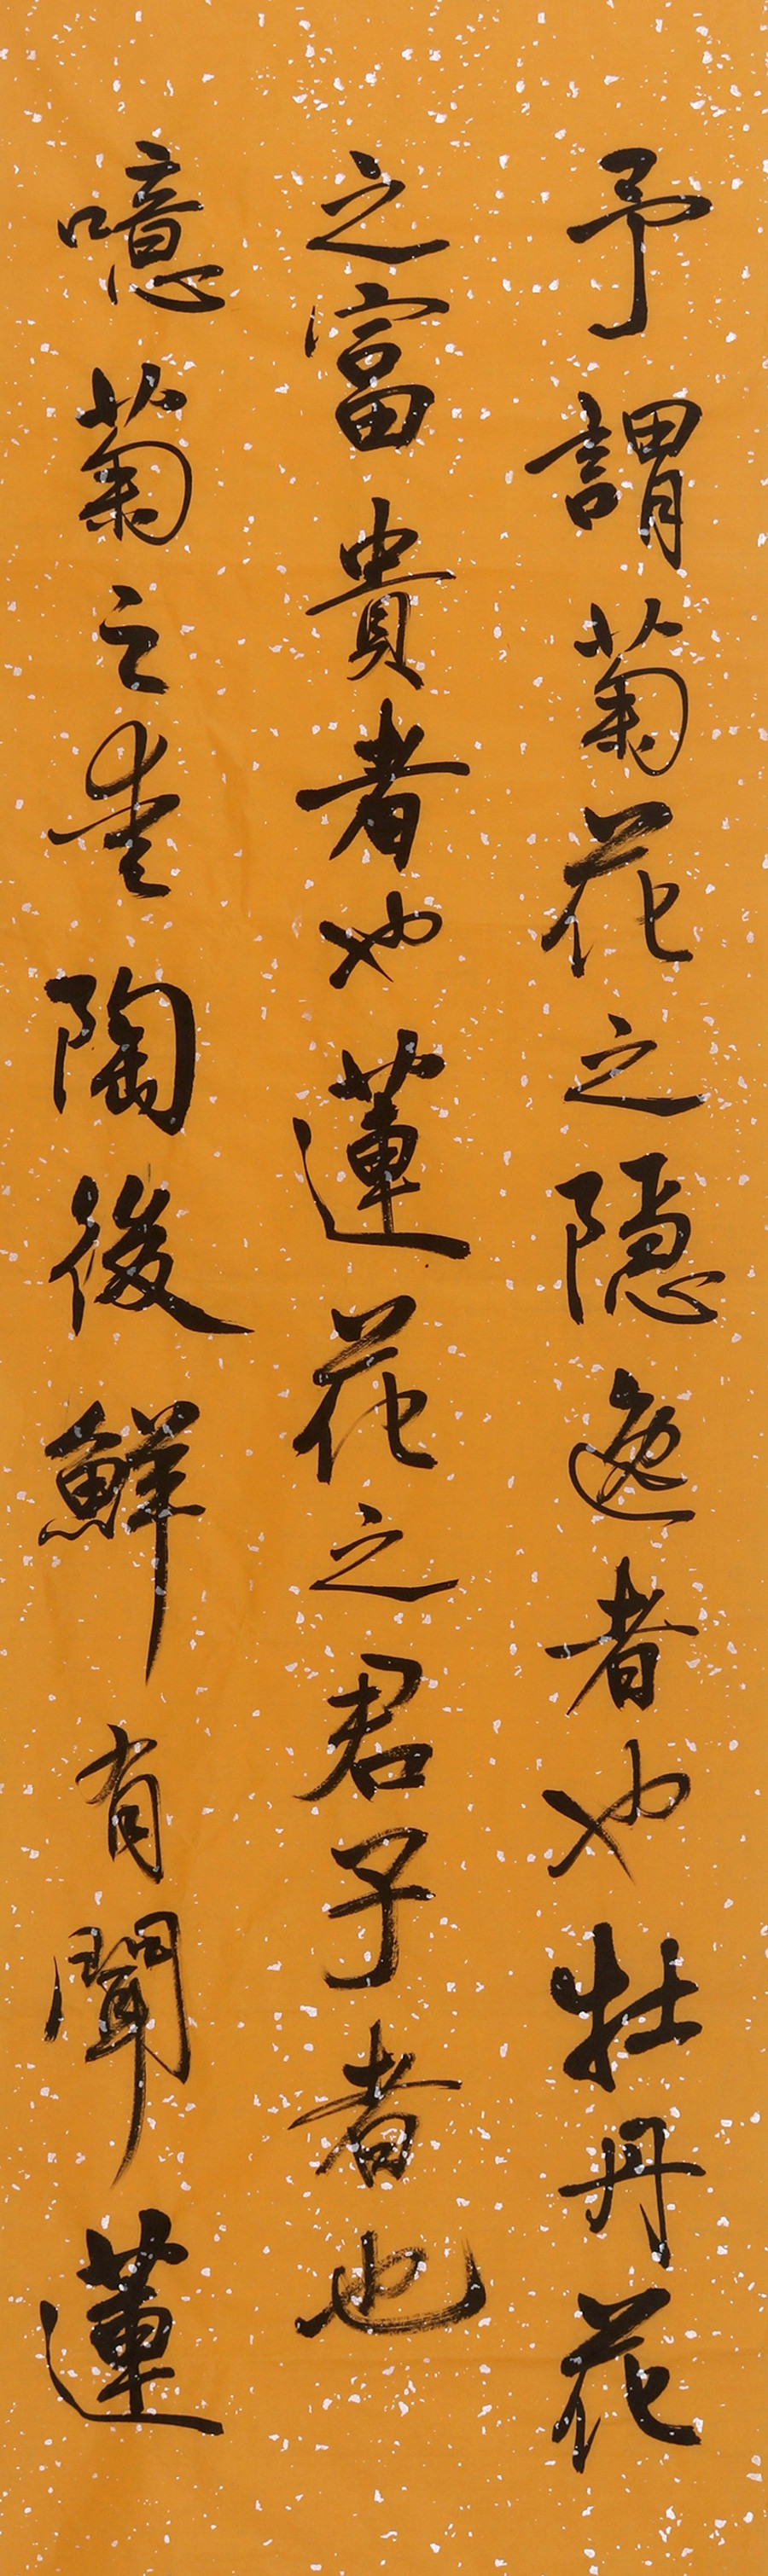 予謂菊花之隱逸者也牡丹花
之富貴者也蓮花之君子者也
噫菊之愛陶後鮮有聞蓮